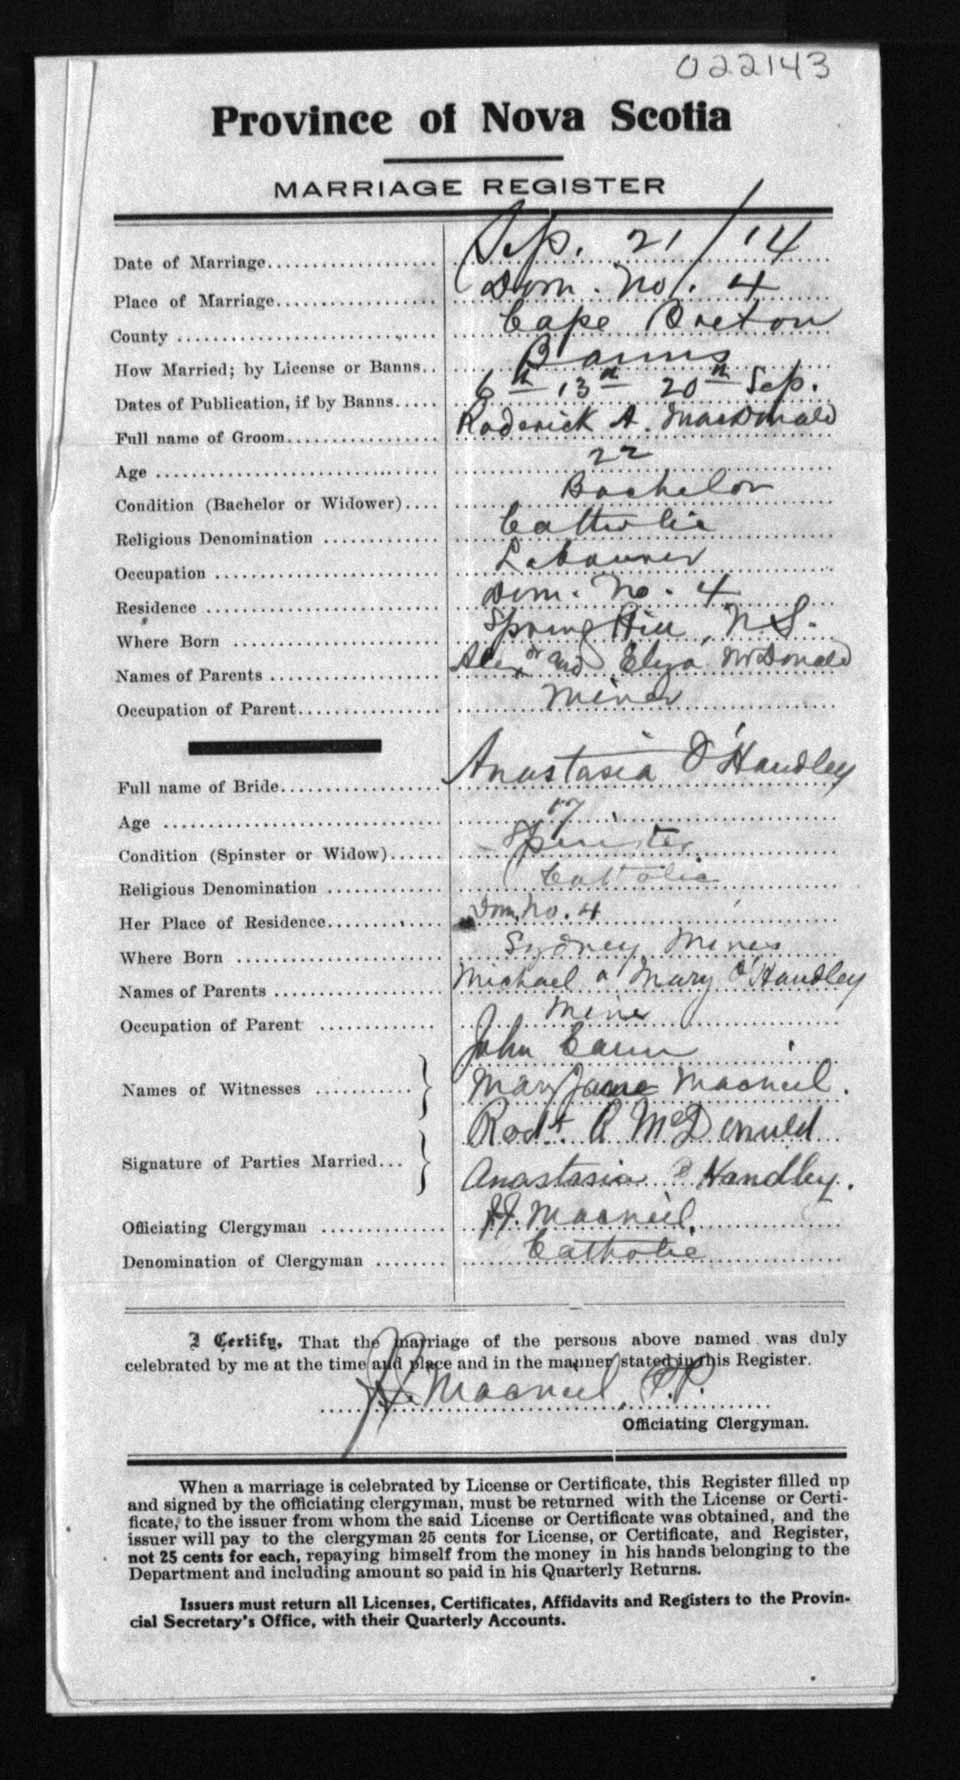 022143
Province of Nova Scotia
MARRIAGE REGISTER
Date of Marriage Sep. 21/14
Place of Marriage Dom. No. 4
County Cape Breton
How Married; by License or Banns Banns
Dates of Publication, if by Banns 6th 13th 20th Sep.
Full name of Groom Roderick A. MacDonald
Age 22
Condition (Bachelor or Widower) Bachelor
Religious Denomination Catholic
Occupation Labourer
Residence Dom. No. 4
Where Born Spring Hill, N.S.
Names of Parents Alexdr and Eliza McDonald
Occupation of Parent Miner
Full name of Bride Anastasia O'Handley
Age 17
Condition (Spinster or Widow) Spinster
Religious Denomination Catholic
Her Place of Residence Dom. No. 4
Where Born Sydney Mines
Names of Parents Michael a Mary O'Handley
Occupation of Parent Miner
John
Names of Witnesses Mary Jane Macneil.
Rodk. A McDonald
Signature of Parties Married Anastasia O Handley.
Officiating Clergyman Macneil.
Denomination of Clergyman Catholic
I Certify, That the marriage of the persons above named was duly
celebrated by me at the time and place and in the manner stated in this Register.
Macneil, P.P.
Officiating Clergyman.
When a marriage is celebrated by License or Certificate, this Register filled up
and signed by the officiating clergyman, must be returned with the License or Certi-
ficate, to the issuer from whom the said License or Certificate was obtained, and the
issuer will pay to the clergyman 25 cents for License, or Certificate, and Register,
not 25 cents for each, repaying himself from the money in his hands belonging to the
Department and including amount so paid in his Quarterly Returns.
Issuers must return all Licenses, Certificates, Affidavits and Registers to the Provin-
cial Secretary's Office, with their Quarterly Accounts.